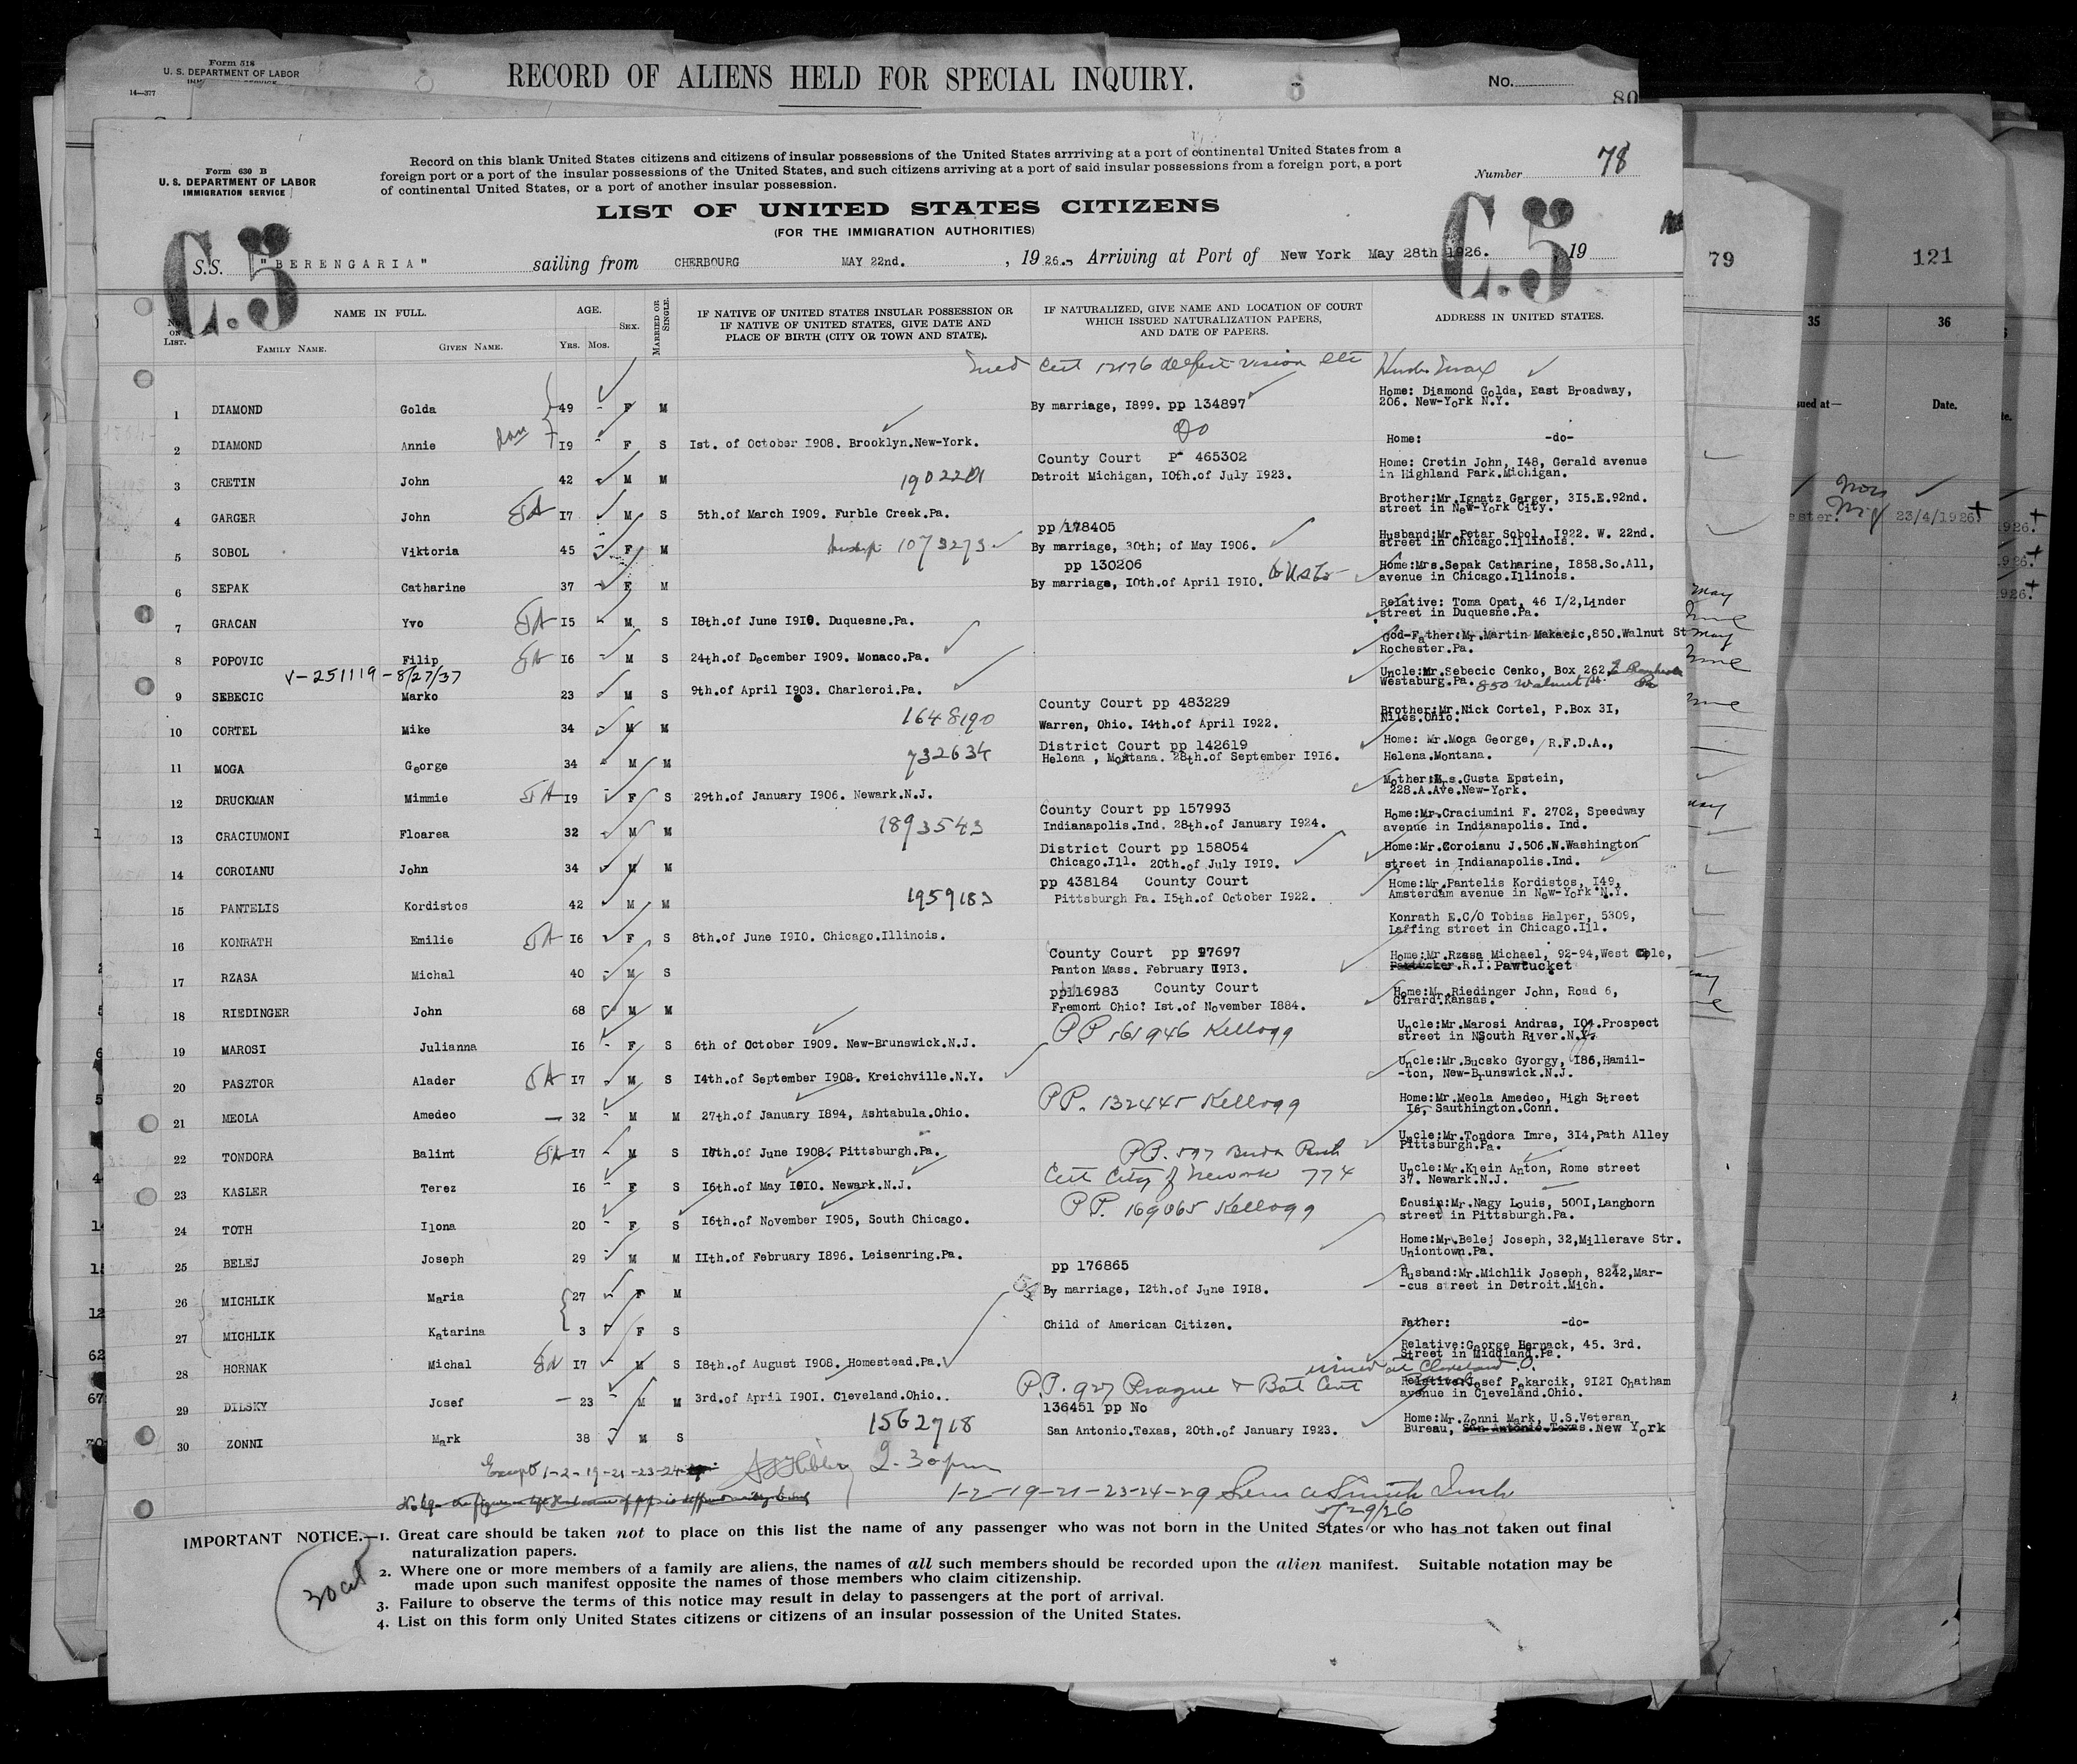 Form 518
U. S. DEPARTMENT OF LABOR
14—377
RECORD OF ALIENS HELD FOR SPECIAL INQUIRY.
No.
80
Form 630 B
U. S. DEPARTMENT OF LABOR
IMMIGRATION SERVICE
Record on this blank United States citizens and citizens of insular possessions of the United States arrriving at a port of continental United States from a
foreign port or a port of the insular possessions of the United States, and such citizens arriving at a port of said insular possessions from a foreign port, a port
of continental United States, or a port of another insular possession.
Number 78
LIST OF UNITED STATES CITIZENS
(FOR THE IMMIGRATION AUTHORITIES)
C.5 C.5
S.S. "BERENGARIA" sailing from CHERBOURG MAY 22nd. , 19 26. Arriving at Port of New York May 28th 1926. , 19
79 121
No. on List. NAME IN FULL. FAMILY NAME. GIVEN NAME. AGE. YRS. MOS. SEX. MARRIED OR SINGLE. IF NATIVE OF UNITED STATES INSULAR POSSESSION OR IF NATIVE OF UNITED STATES, GIVE DATE AND PLACE OF BIRTH (CITY OR TOWN AND STATE). IF NATURALIZED, GIVE NAME AND LOCATION OF COURT WHICH ISSUED NATURALIZATION PAPERS, AND DATE OF PAPERS. ADDRESS IN UNITED STATES.
35 36
sued at— Date.
Cert 12176 defect vision
1 DIAMOND Golda 49 - F M By marriage, I899. pp 134897 Home: Diamond Golda, East Broadway, 206. New-York N.Y.
2 DIAMOND Annie dau I9 - F S Ist. of October I908. Brooklyn.New-York. Do Home: -do-
3 CRETIN John 42 - M M 1902201 County Court P 465302 Detroit Michigan, IOth.of July I923. Home: Cretin John, I48, Gerald avenue in Highland Park.Michigan.
4 GARGER John I7 M S 5th.of March I909. Furble Creek.Pa. Brother:Mr.Ignatz Garger, 3I5.E.92nd. street in New-York City.
23/4/1926.
5 SOBOL Viktoria 45 - F M 1073273 pp 178405 By marriage, 30th; of May I906. Husband:Mr.Petar Sobol, I922. W. 22nd. street in Chicago.Illinois.
6 SEPAK Catharine 37 F M pp 130206 By marriage, IOth.of April I9IO. Home:Mrs.Sepak Catharine, I858.So.All, avenue in Chicago.Illinois.
7 GRACAN Yvo I5 M S I8th.of June I9I0. Duquesne.Pa. Relative: Toma Opat, 46 I/2,Linder street in Duquesne.Pa.
8 POPOVIC Filip I6 M S 24th.of December I909. Monaco.Pa. God-Father:Mr.Martin Makacic,850.Walnut St Rochester.Pa.
V-251119-8/27/37
9 SEBECIC Marko 23 M S 9th.of April I903. Charleroi.Pa. Uncle:Mr.Sebecic Cenko, Box 262, Westaburg.Pa. 850 Walnut St.
10 CORTEL Mike 34 - M M 1648190 County Court pp 483229 Warren, Ohio. I4th.of April I922. Brother:Mr.Nick Cortel, P.Box 3I, Niles.Ohio.
11 MOGA George 34 M M 732634 District Court pp 142619 Helena , Montana. 28th.of September I9I6. Home: Mr.Moga George, R.F.D.A., Helena.Montana.
12 DRUCKMAN Mimmie I9 F S 29th.of January I906. Newark.N.J. Mother:Mrs.Gusta Epstein, 228.A.Ave.New-York.
13 CRACIUMONI Floarea 32 M M 1893543 County Court pp 157993 Indianapolis.Ind. 28th.of January I924. Home:Mr.Craciumini F. 2702, Speedway avenue in Indianapolis. Ind.
14 COROIANU John 34 M M District Court pp 158054 Chicago.Ill. 20th.of July I9I9. Home:Mr.Coroianu J.506.W.Washington street in Indianapolis.Ind.
15 PANTELIS Kordistos 42 M M 1959183 pp 438184 County Court Pittsburgh Pa. I5th.of October I922. Home:Mr.Pantelis Kordistos, I49, Amsterdam avenue in New-York N.Y.
16 KONRATH Emilie I6 F S 8th.of June I9IO. Chicago.Illinois. Konrath E.C/O Tobias Halper, 5309, Laffing street in Chicago.Ill.
17 RZASA Michal 40 M S County Court pp 97697 Panton Mass. February I9I3. Home:Mr.Rzasa Michael, 92-94,West Cole, R.I. Pawtucket
18 RIEDINGER John 68 M M pp116983 County Court Fremont Ohio? Ist.of November I884. Home:Mr.Riedinger John, Road 6, Girard.Kansas.
19 MAROSI Julianna I6 - F S 6th of October I909. New-Brunswick.N.J. PP 561946 Kellogg Uncle:Mr.Marosi Andras, IO4.Prospect street in South River.N.
20 PASZTOR Alader I7 M S I4th.of September I908. Kreichville.N.Y. Uncle:Mr.Bucsko Gyorgy, I86,Hamil- -ton, New-Brunswick.N.J.
21 MEOLA Amedeo 32 - M M 27th.of January I894, Ashtabula.Ohio. PP. 132445 Kellogg Home:Mr.Meola Amedeo, High Street I6, Sauthington.Conn.
22 TONDORA Balint I7 - M S I0th.of June I908. Pittsburgh.Pa. PP. 597 Uncle:Mr.Tondora Imre, 3I4,Path Alley Pittsburgh.Pa.
23 KASLER Terez I6 - F S I6th.of May I9I0. Newark.N.J. Cert City of Newark 774 Uncle:Mr.Klein Anton, Rome street 37. Newark.N.J.
24 TOTH Ilona 20 - F S I6th.of November I905, South Chicago. PP. 169065 Kellogg Cousin:Mr.Nagy Louis, 500I,Langhorn street in Pittsburgh.Pa.
25 BELEJ Joseph 29 - M M IIth.of February I896. Leisenring.Pa. Home:Mr.Belej Joseph, 32,Millerave Str. Uniontown.Pa.
26 MICHLIK Maria 27 F M pp 176865 By marriage, I2th.of June I9I8. Husband:Mr.Michlik Joseph, 8242,Mar- -cus street in Detroit.Mich.
27 MICHLIK Katarina 3 F S Child of American Citizen. Father: -do-
28 HORNAK Michal I7 M S I8th.of August I908. Homestead.Pa. Relative:George Hernack, 45. 3rd. Street in Midland.Pa.
29 DILSKY Josef 23 - M M 3rd.of April I90I. Cleveland.Ohio. P.P. 927 Prague & Bat Cert issued at Cleveland O. Relative:Josef Pekarcik, 9I2I Chatham avenue in Cleveland.Ohio.
30 ZONNI Mark 38 M S 1562718 136451 pp No San Antonio.Texas, 20th.of January I923. Home:Mr.Zonni Mark, U.S.Veteran Bureau, San Antonio.Texas.New York
Except 1-2-19-21-23-24- 2-30 pm
1-2-19-21-23-24-29
5/29/26
IMPORTANT NOTICE.—1. Great care should be taken not to place on this list the name of any passenger who was not born in the United States or who has not taken out final
naturalization papers.
2. Where one or more members of a family are aliens, the names of all such members should be recorded upon the alien manifest. Suitable notation may be
made upon such manifest opposite the names of those members who claim citizenship.
3. Failure to observe the terms of this notice may result in delay to passengers at the port of arrival.
4. List on this form only United States citizens or citizens of an insular possession of the United States.
30 cit